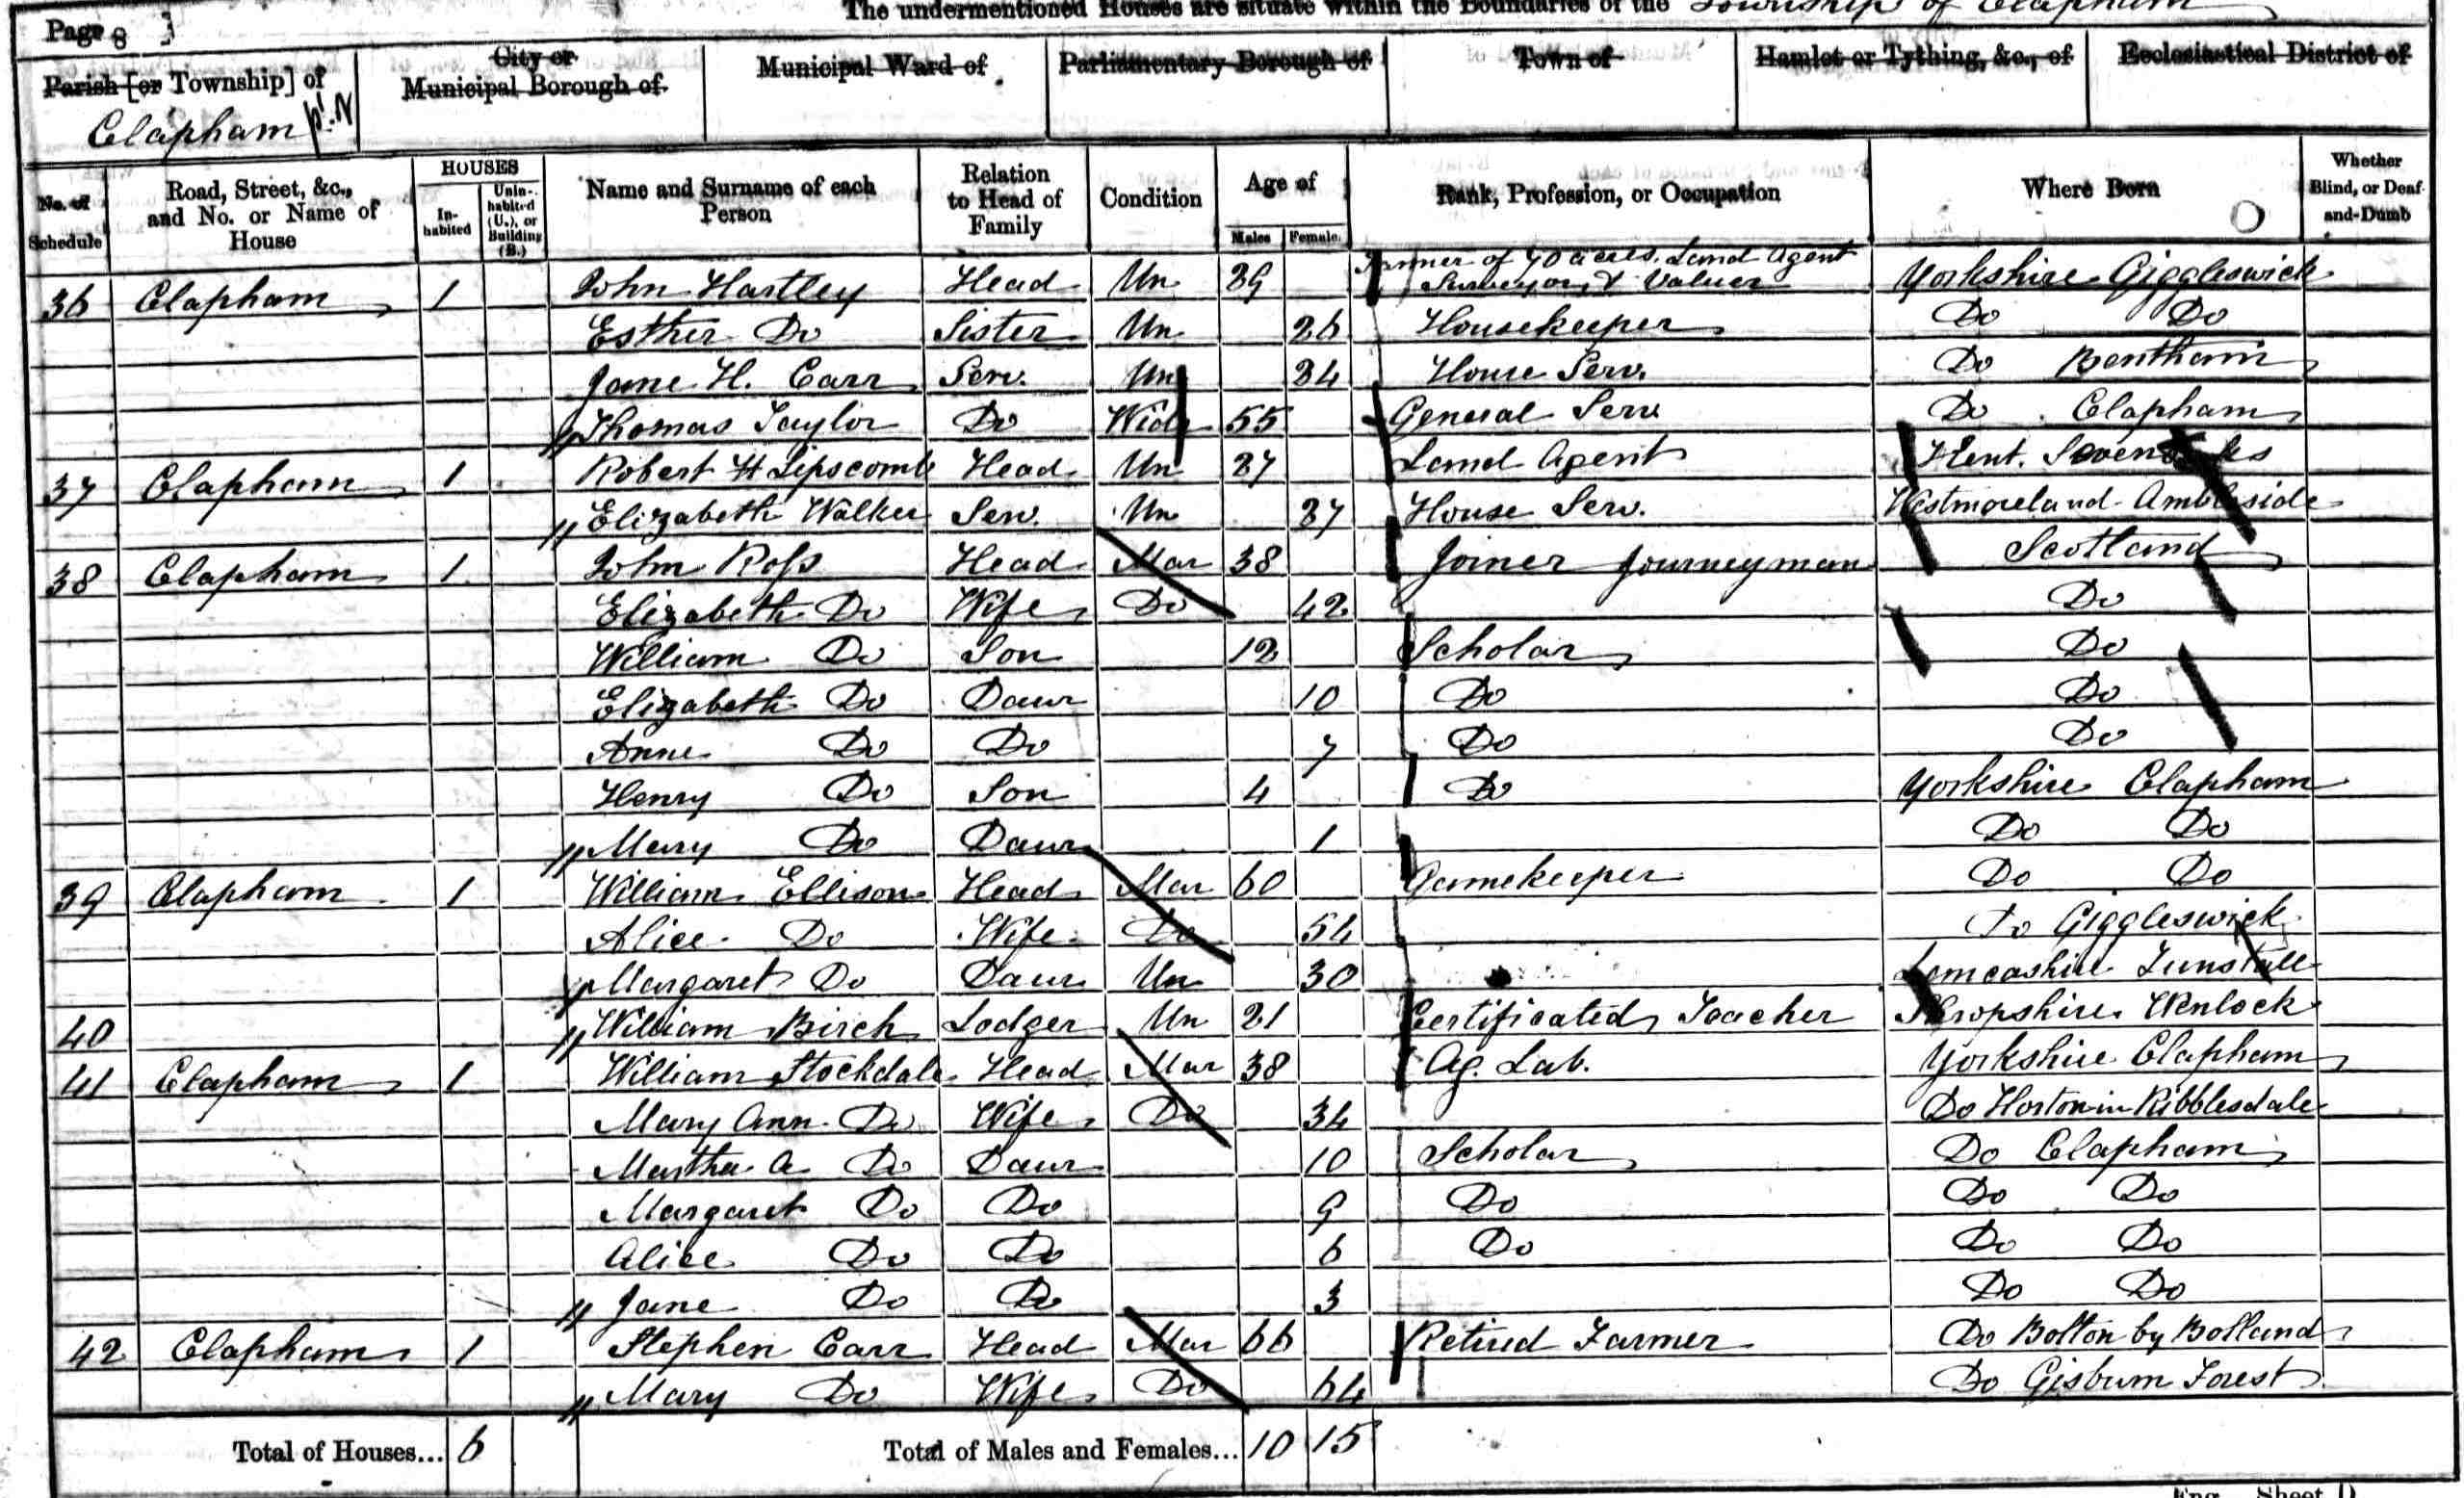 The undermentioned Houses are situate within the Boundaries of the Township of Clapham
Page 8
Parish [or Township] of City or Municipal Borough of Municipal Ward of Parliamentary Borough of Town of Hamlet or Tything, &c., of Ecclesiastical District of
Clapham
No. of Schedule Road, Street, &c., and No. or Name of House HOUSES Inhabited Uninhabited (U.), or Building (B.) Name and Surname of each Person Relation to Head of Family Condition Age of Males Female Rank, Profession, or Occupation Where Born Whether Blind, or Deaf-and-Dumb
36 Clapham 1 John Hartley Head Un 39 Farmer of 70 acres. Land Agent Surveyor, & Valuer Yorkshire Giggleswick
Esther Do Sister Un 26 Housekeeper Do Do
Jane H. Carr Serv. Un 34 House Serv. Do Bentham
Thomas Taylor Do Widr 55 General Serv Do Clapham
37 Clapham 1 Robert H Lipscomb Head Un 27 Land Agent Kent. Sevenoaks
Elizabeth Walker Serv. Un 37 House Serv. Westmoreland Ambleside
38 Clapham 1 John Ross Head Mar 38 Joiner Journeyman Scotland
Elizabeth Do Wife Do 42 Do
William Do Son 12 Scholar Do
Elizabeth Do Daur 10 Do Do
Anne Do Do 7 Do Do
Henry Do Son 4 Do Yorkshire Clapham
Mary Do Daur 1 Do Do
39 Clapham 1 William Ellison Head Mar 60 Gamekeeper Do Do
Alice Do Wife Do 54 Do Giggleswick
Margaret Do Daur Un 30 Lancashire Tunstall
40 William Birch Lodger Un 21 Certificated Teacher Shropshire Wenlock
41 Clapham 1 William Stockdale Head Mar 38 Ag. Lab. Yorkshire Clapham
Mary Ann Do Wife Do 34 Do Horton in Ribblesdale
Martha A Do Daur 10 Scholar Do Clapham
Margaret Do Do 9 Do Do Do
Alice Do Do 6 Do Do Do
Jane Do Do 3 Do Do
42 Clapham 1 Stephen Carr Head Mar 66 Retired Farmer Do Bolton by Bolland
Mary Do Wife Do 64 Do Gisburn Forest
Total of Houses... 6 Total of Males and Females... 10 15
Eng. Sheet D